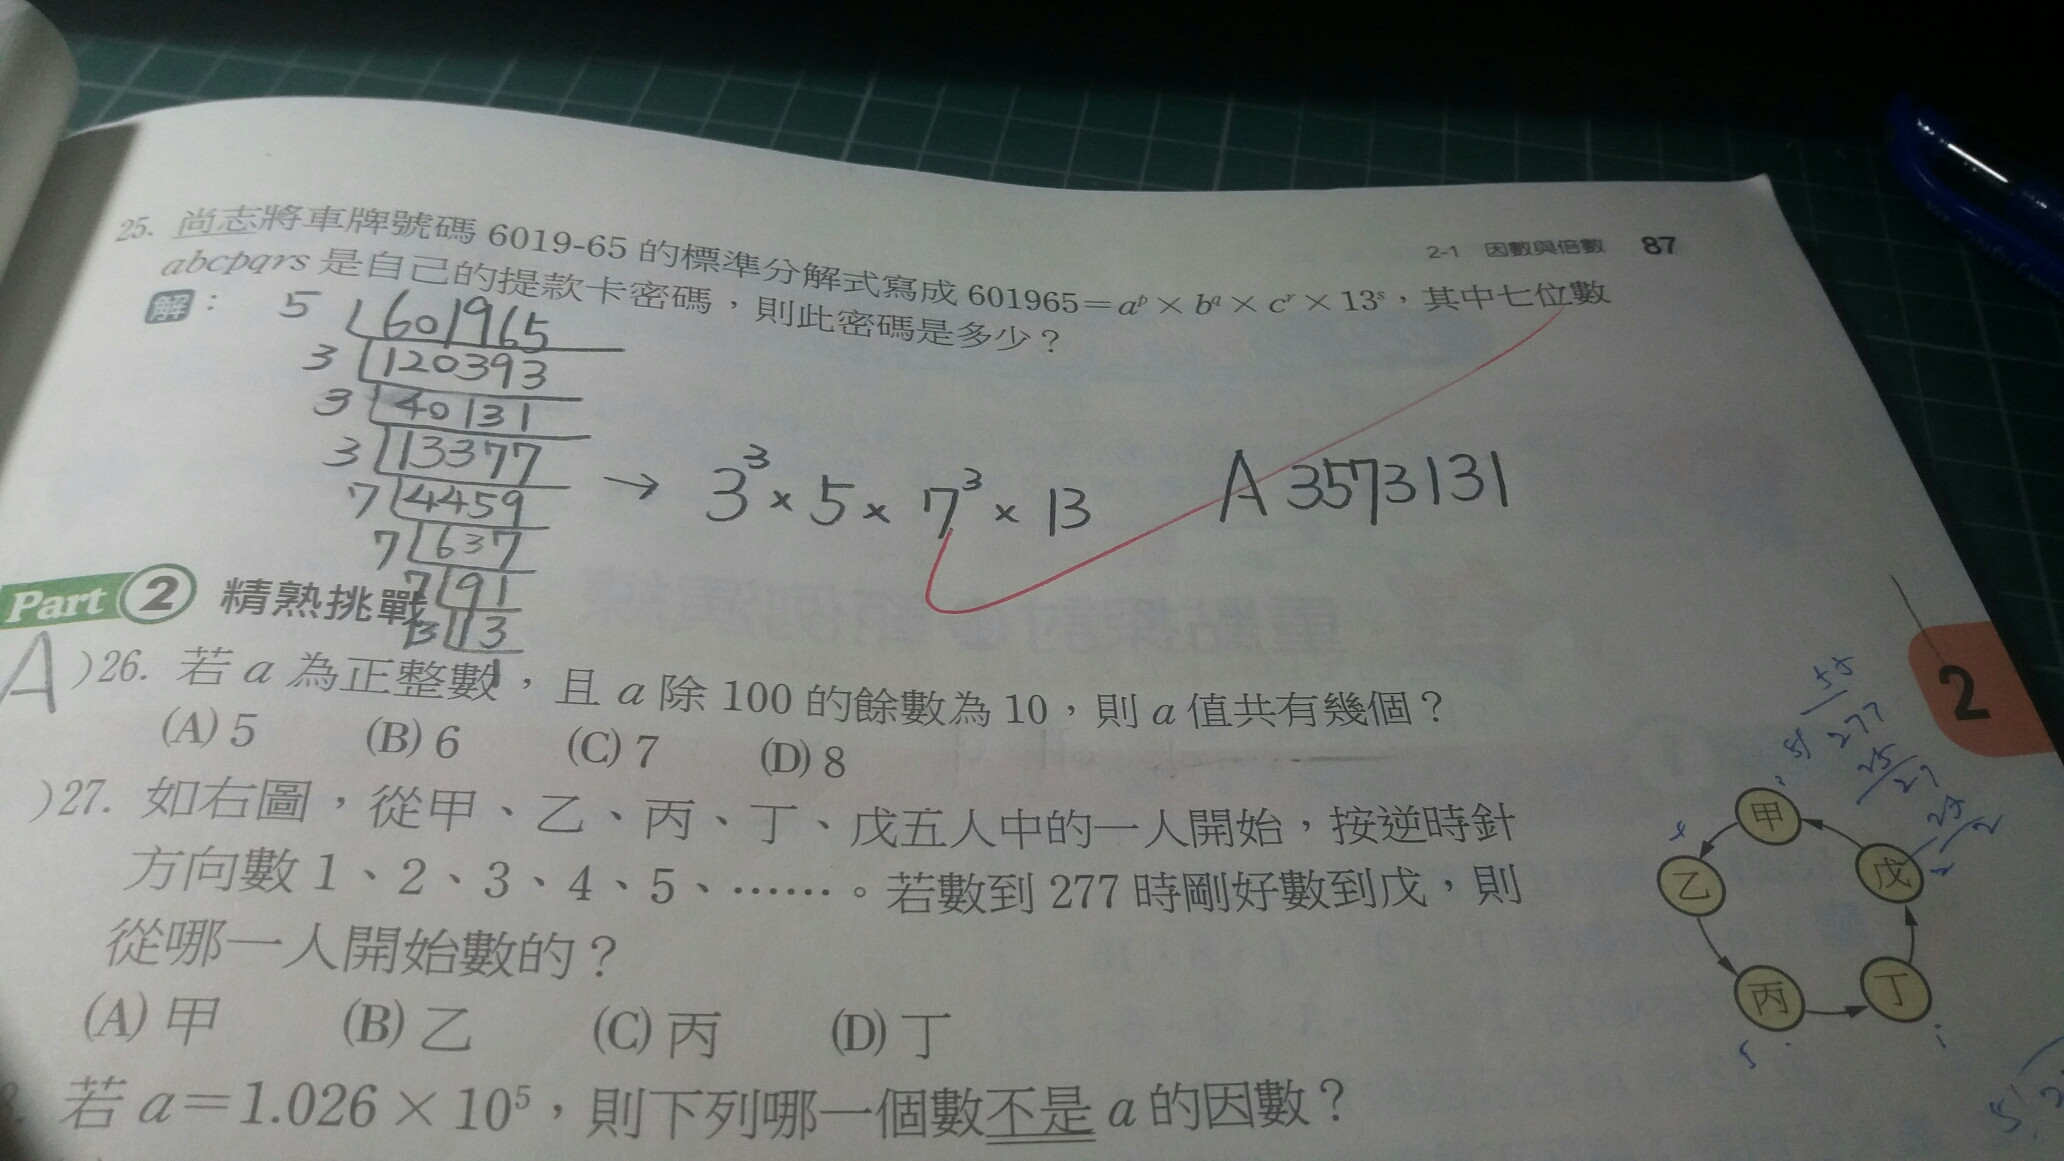 2-1 因數與倍數 87
25. 尚志將車牌號碼 6019-65 的標準分解式寫成 601965=aᵖ×b^q×cʳ×13ˢ，其中七位數
abcpqrs 是自己的提款卡密碼，則此密碼是多少？
解：
5 601965
3 120393
3 40131
3 13377
7 4459
7 637
7 91
13 13
1
→ 3³×5×7³×13
A 3573131
Part 2 精熟挑戰
A )26. 若 a 為正整數，且 a 除 100 的餘數為 10，則 a 值共有幾個？
(A) 5 (B) 6 (C) 7 (D) 8
2
)27. 如右圖，從甲、乙、丙、丁、戊五人中的一人開始，按逆時針
方向數 1、2、3、4、5、……。若數到 277 時剛好數到戊，則
從哪一人開始數的？
(A) 甲 (B) 乙 (C) 丙 (D) 丁
甲
乙
戊
丙
丁
55
5 277
25
27
25
2
若 a=1.026×10⁵，則下列哪一個數不是 a 的因數？